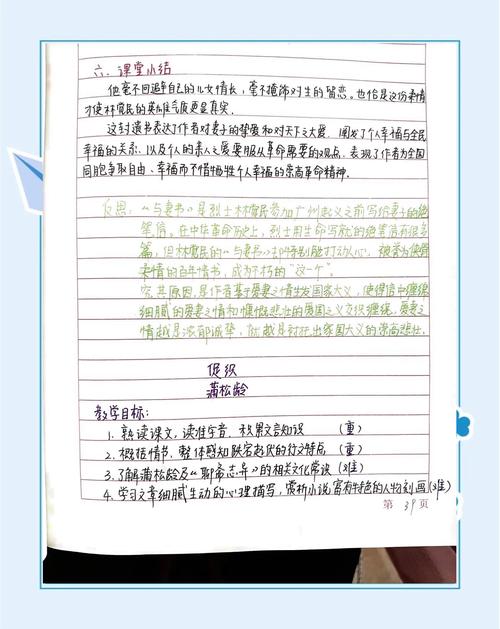 六、课堂小结
他毫不回避自己的儿女情长,毫不掩饰对生的留恋。也恰是这份柔情
才使林觉民的英雄气质更显真实.
这封遗书表达了作者对妻子的挚爱和对天下之大爱,阐发了个人幸福与全民
幸福的关系.以及个人的亲人之爱要服从革命需要的观点,表现了作者为全国
同胞争取自由、幸福而不惜牺牲个人幸福的崇高革命精神.
反思:《与妻书》是烈士林觉民参加广州起义之前写给妻子的绝
笔信.在中华革命历史上,烈士用生命写就的绝笔信有很多
篇,但林觉民的《与妻书》却特别能打动人心,被誉为侠骨
柔情的百年情书,成为不朽的“这一个”。
究其原因,是作者基于爱妻之情生发国家大义,使得信中缠绵
细腻的爱妻之情和慷慨悲壮的爱国之义交织缠绕,爱妻之
情越是浓郁诚挚,就越是衬托出家国大义的崇高悲壮.
促织
蒲松龄
教学目标:
1. 熟读课文,读准字音.积累文言知识 (重)
2. 概括情节,整体感知跌宕起伏的行文特点 (重)
3. 了解蒲松龄及《聊斋志异》的相关文化常识 (难)
4. 学习文章细腻生动的心理描写,赏析小说富有特色的人物刻画(难)
第 39 页